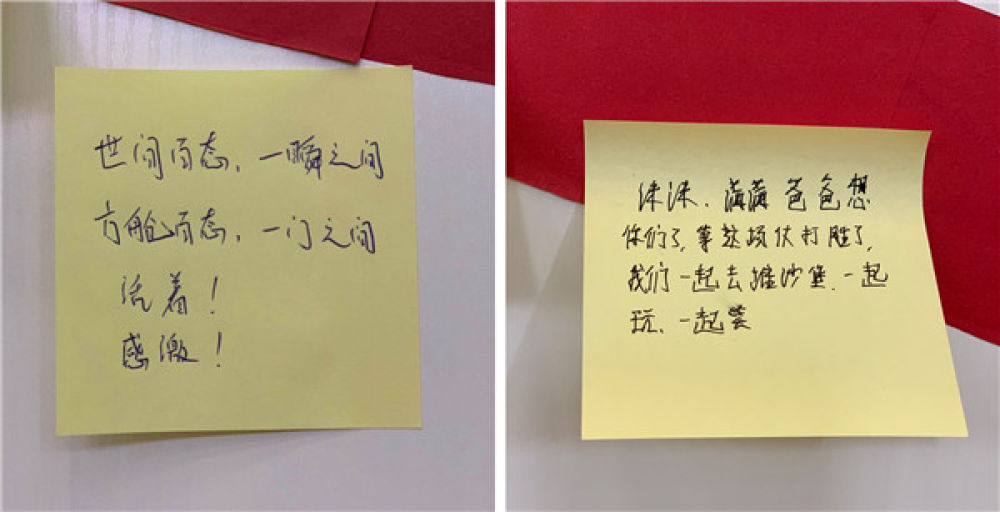 世间百态、一瞬之间
方舱百态、一门之间
活着！
感激！
沫沫、满满爸爸想
你们了,等这场仗打胜了,
我们一起去推沙堡、一起
玩、一起笑